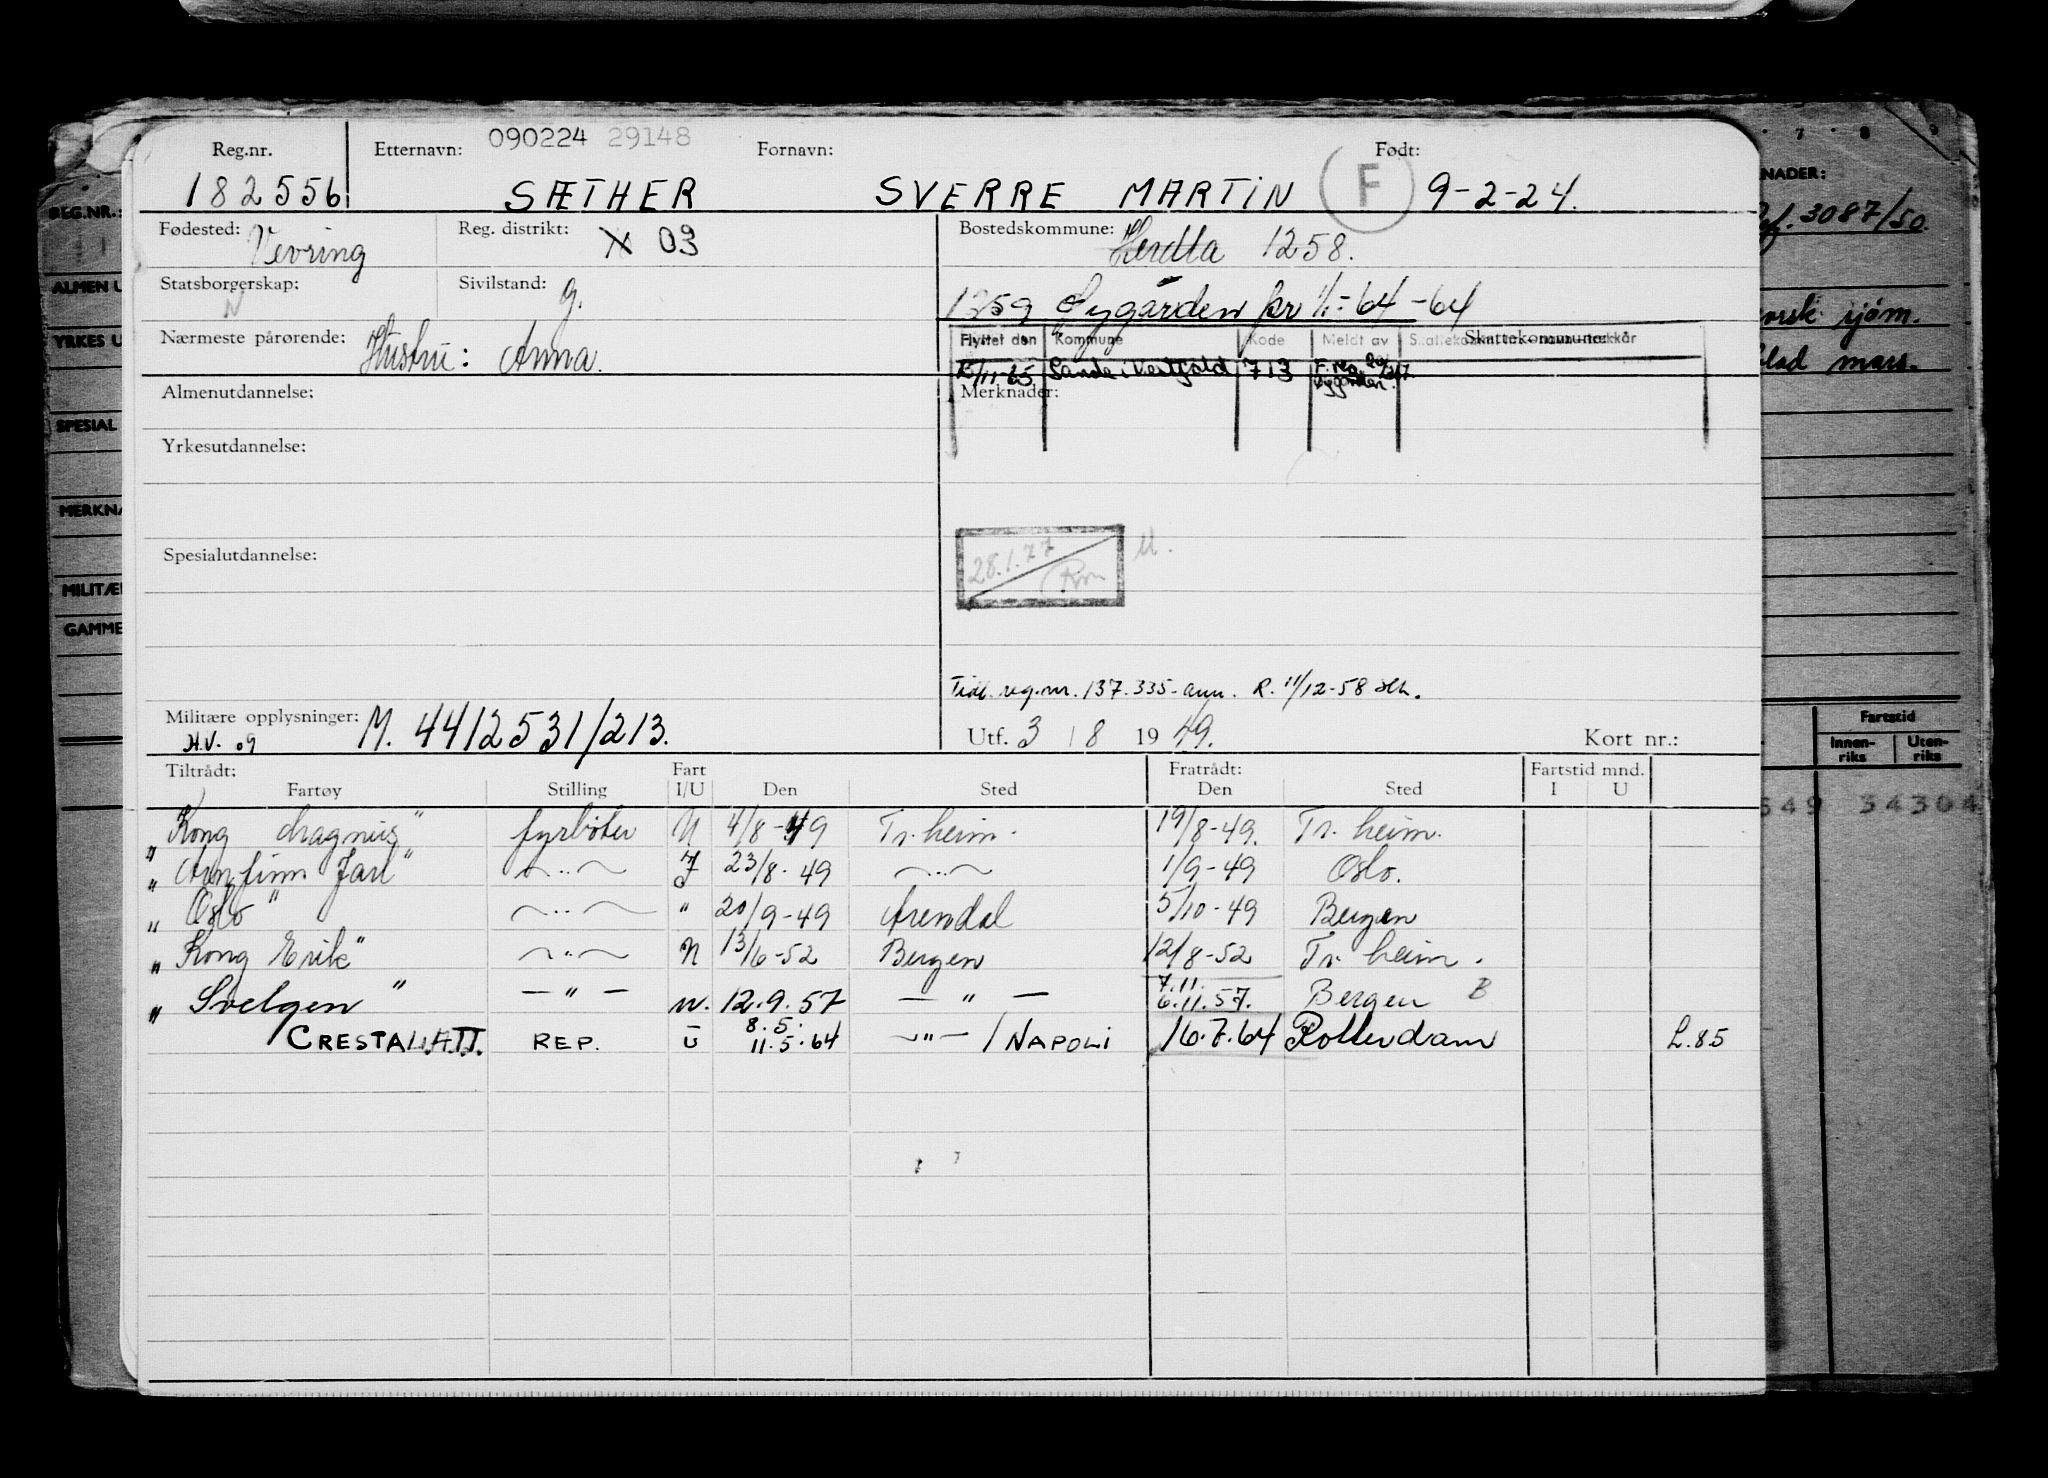 Reg.nr. Etternavn: 090224 29148 Fornavn: Født:
182556 SÆTHER SVERRE MARTIN F 9-2-24.
Fødested: Vevring Reg. distrikt: X 03 Bostedskommune: Herdla 1258.
Statsborgerskap: N Sivilstand: g. 1259 Øygården fr 1/1-64 -64
Nærmeste pårørende: Hustru: Anna.
Flyttet den Kommune Kode Meldt av Skattekommune
/11-65 Sande i Vestfold 713 F.reg. Øygarden.
Almenutdannelse: Merknader:
Yrkesutdannelse:
Spesialutdannelse:
28.1.77
Tidl. reg.nr. 137.335-ann. R. 11/12-58
Militære opplysninger: M. 4412531/213.
H.V. 09
Utf. 3 / 8 1949. Kort nr.:
Tiltrådt: Fart Fratrådt: Fartstid mnd.
Fartøy Stilling I/U Den Sted Den Sted I U
" Kong Magnus" fyrbøter N 4/8-49 Tr.heim. 19/8-49. Tr.heim.
" Arnfinn Jarl" —"— I 23/8-49 —"— 1/9-49 Oslo.
" Oslo" —"— " 20/9-49 Arendal 5/10-49 Bergen
" Kong Erik" —"— N 13/6-52 Bergen 12/8-52 Tr.heim.
" Svelgen" —"— N. 12.9.57 —"— 7.11. 6.11.57. Bergen B
CRESTA REP. U 8.5. 11.5.64 —"—/NAPOLI 16.7.64 Rotterdam L.85
REG.NR.:
ALMEN U
YRKES U
SPESIAL
MERKNA
MILITÆR
GAMME
7 8 9
NADER:
3087/50
norsk sjøm.
blad mars.
Fartstid
Innen-riks Uten-riks
649 34304